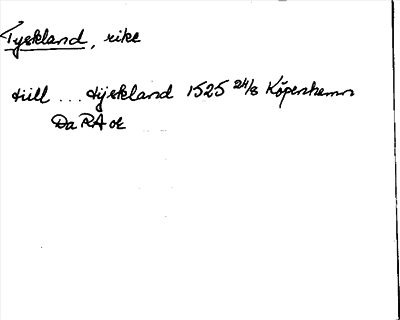 Tyskland, rike
till ... tÿskland 1525 24/8 Köpenhamn
DaRA or